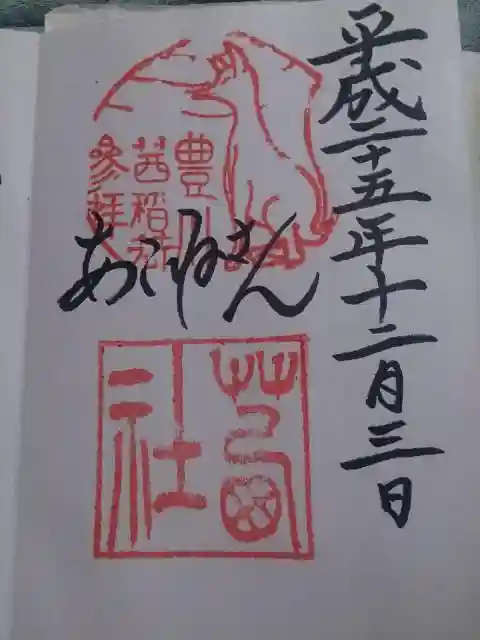 平成二十五年十二月三日
豊川
茜稲荷
參拝
あかねさん
茜社